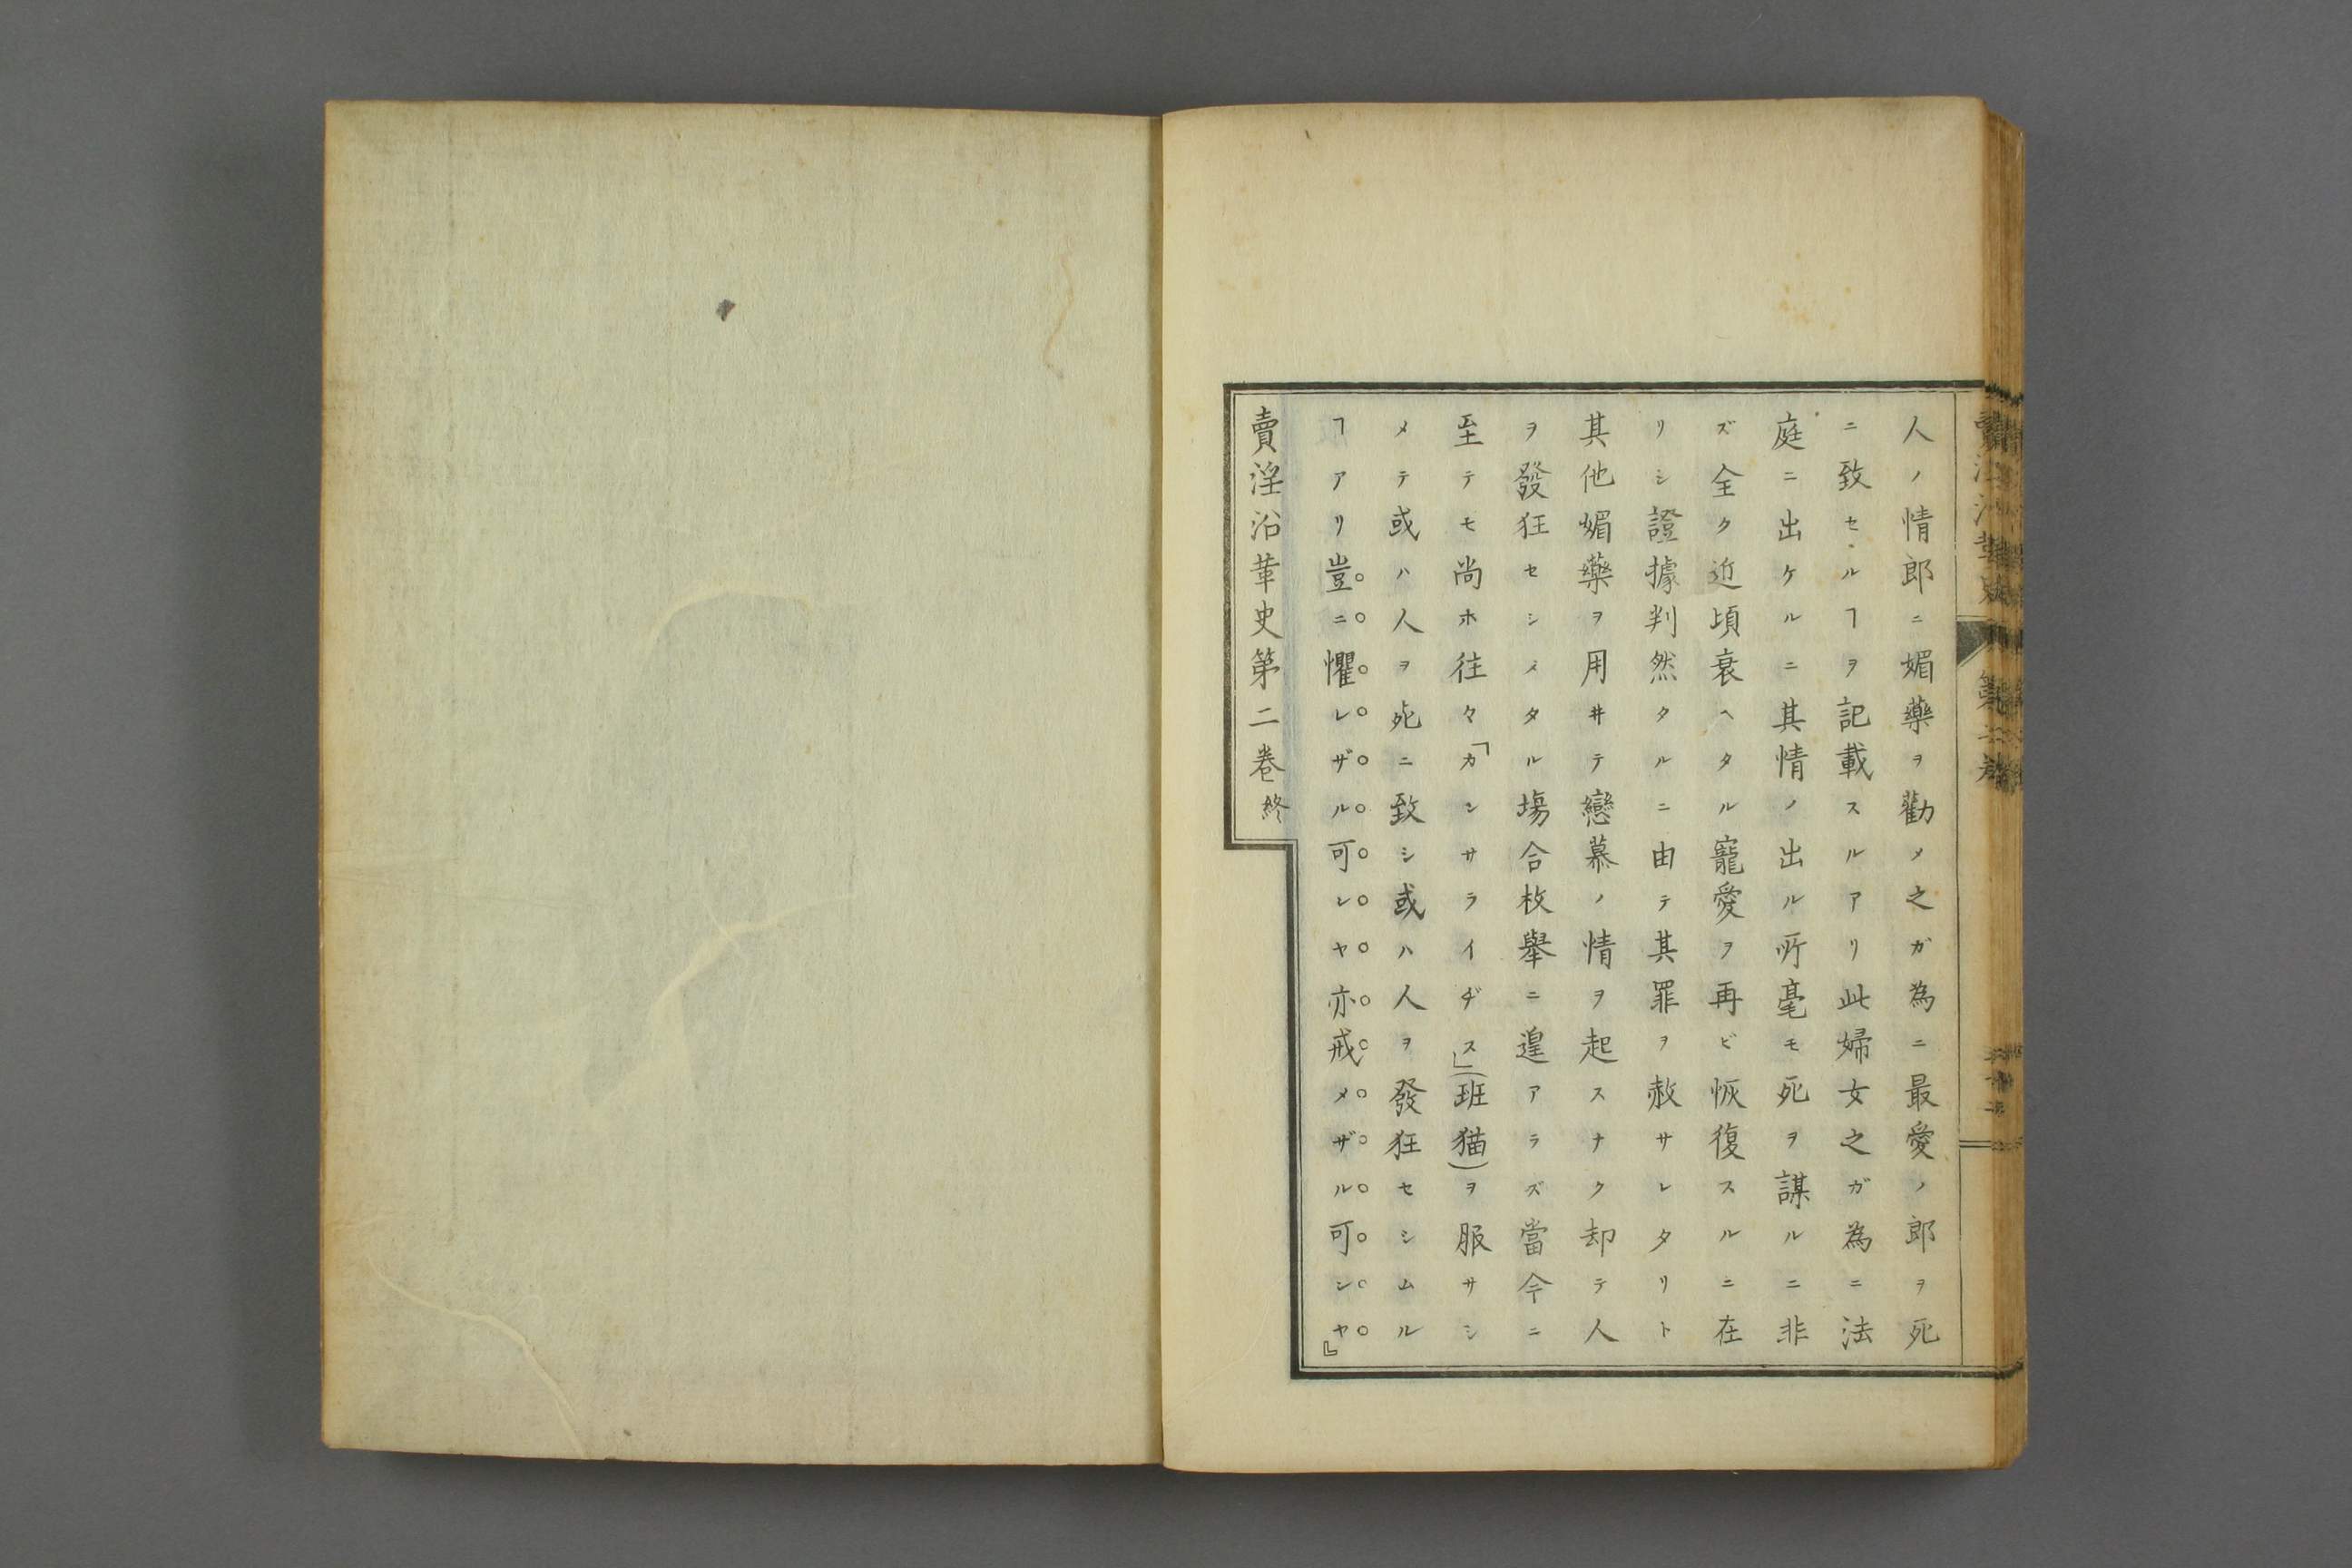 人ノ情郎ニ媚藥ヲ勸メ之ガ為ニ最愛ノ郎ヲ死
ニ致セルヿヲ記載スルアリ此婦女之ガ為ニ法
庭ニ出ケルニ其情ノ出ル所毫モ死ヲ謀ルニ非
ズ全ク近頃衰ヘタル寵愛ヲ再ビ恢復スルニ在
リシ證據判然タルニ由テ其罪ヲ赦サレタリト
其他媚藥ヲ用井テ戀慕ノ情ヲ起スナク却テ人
ヲ發狂セシメタル塲合枚舉ニ遑アラズ當今ニ
至テモ尚ホ往々「カンサライヂス」(班猫)ヲ服サシ
メテ或ハ人ヲ死ニ致シ或ハ人ヲ發狂セシムル
ヿアリ豈ニ懼レザル可レヤ亦戒メザル可シヤ』
賣淫沿革史第二卷終